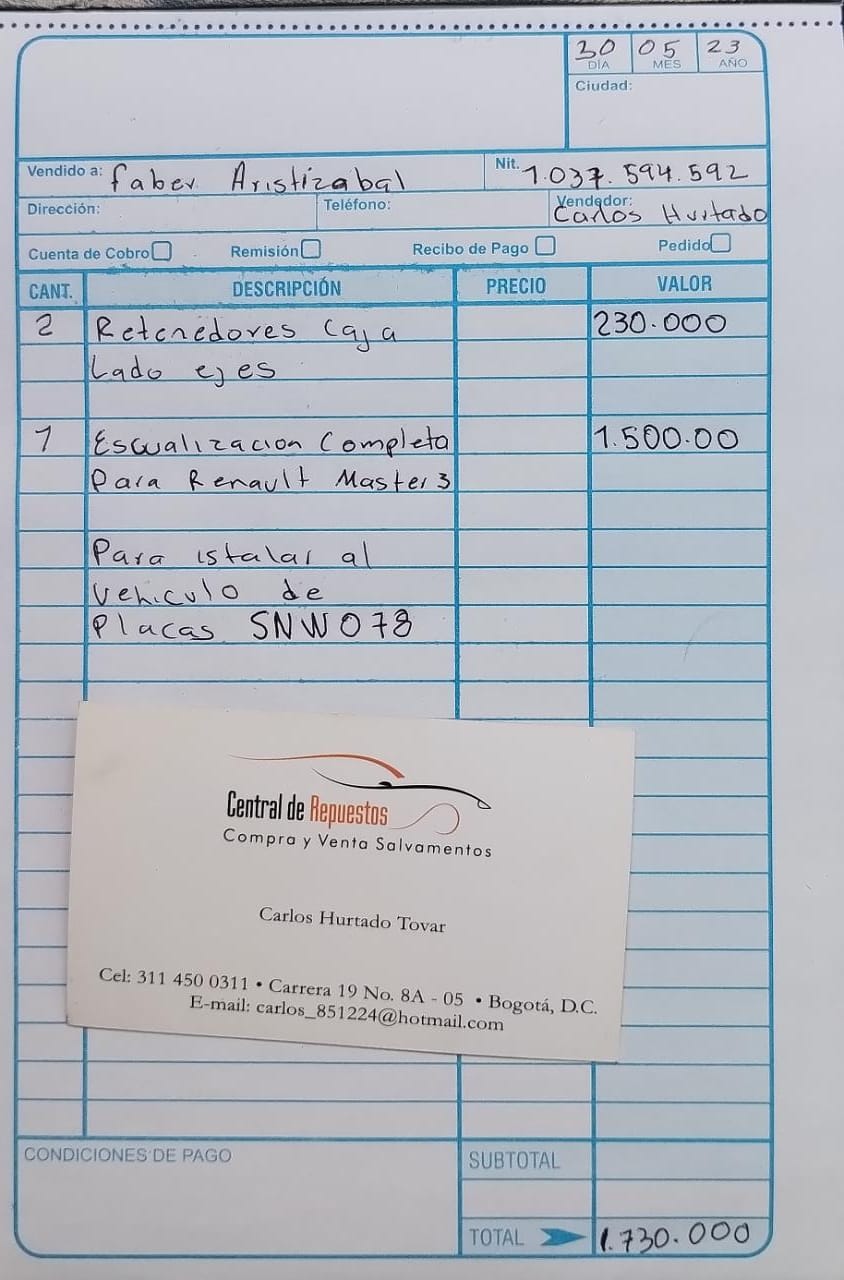 30 05 23
DÍA MES AÑO
Ciudad:
Vendido a: faber Aristizabal Nit. 1.037.594.592
Dirección: Teléfono: Vendedor: Carlos Hurtado
Cuenta de Cobro Remisión Recibo de Pago Pedido
CANT. DESCRIPCIÓN PRECIO VALOR
2 Retenedores Caja 230.000
Lado ejes
1 Escualizacion Completa 1.500.00
Para Renault Master 3
Para istalar al
Vehiculo de
Placas SNW078
Central de Repuestos
Compra y Venta Salvamentos
Carlos Hurtado Tovar
Cel: 311 450 0311 • Carrera 19 No. 8A - 05 • Bogotá, D.C.
E-mail: carlos_851224@hotmail.com
CONDICIONES DE PAGO SUBTOTAL
TOTAL 1.730.000